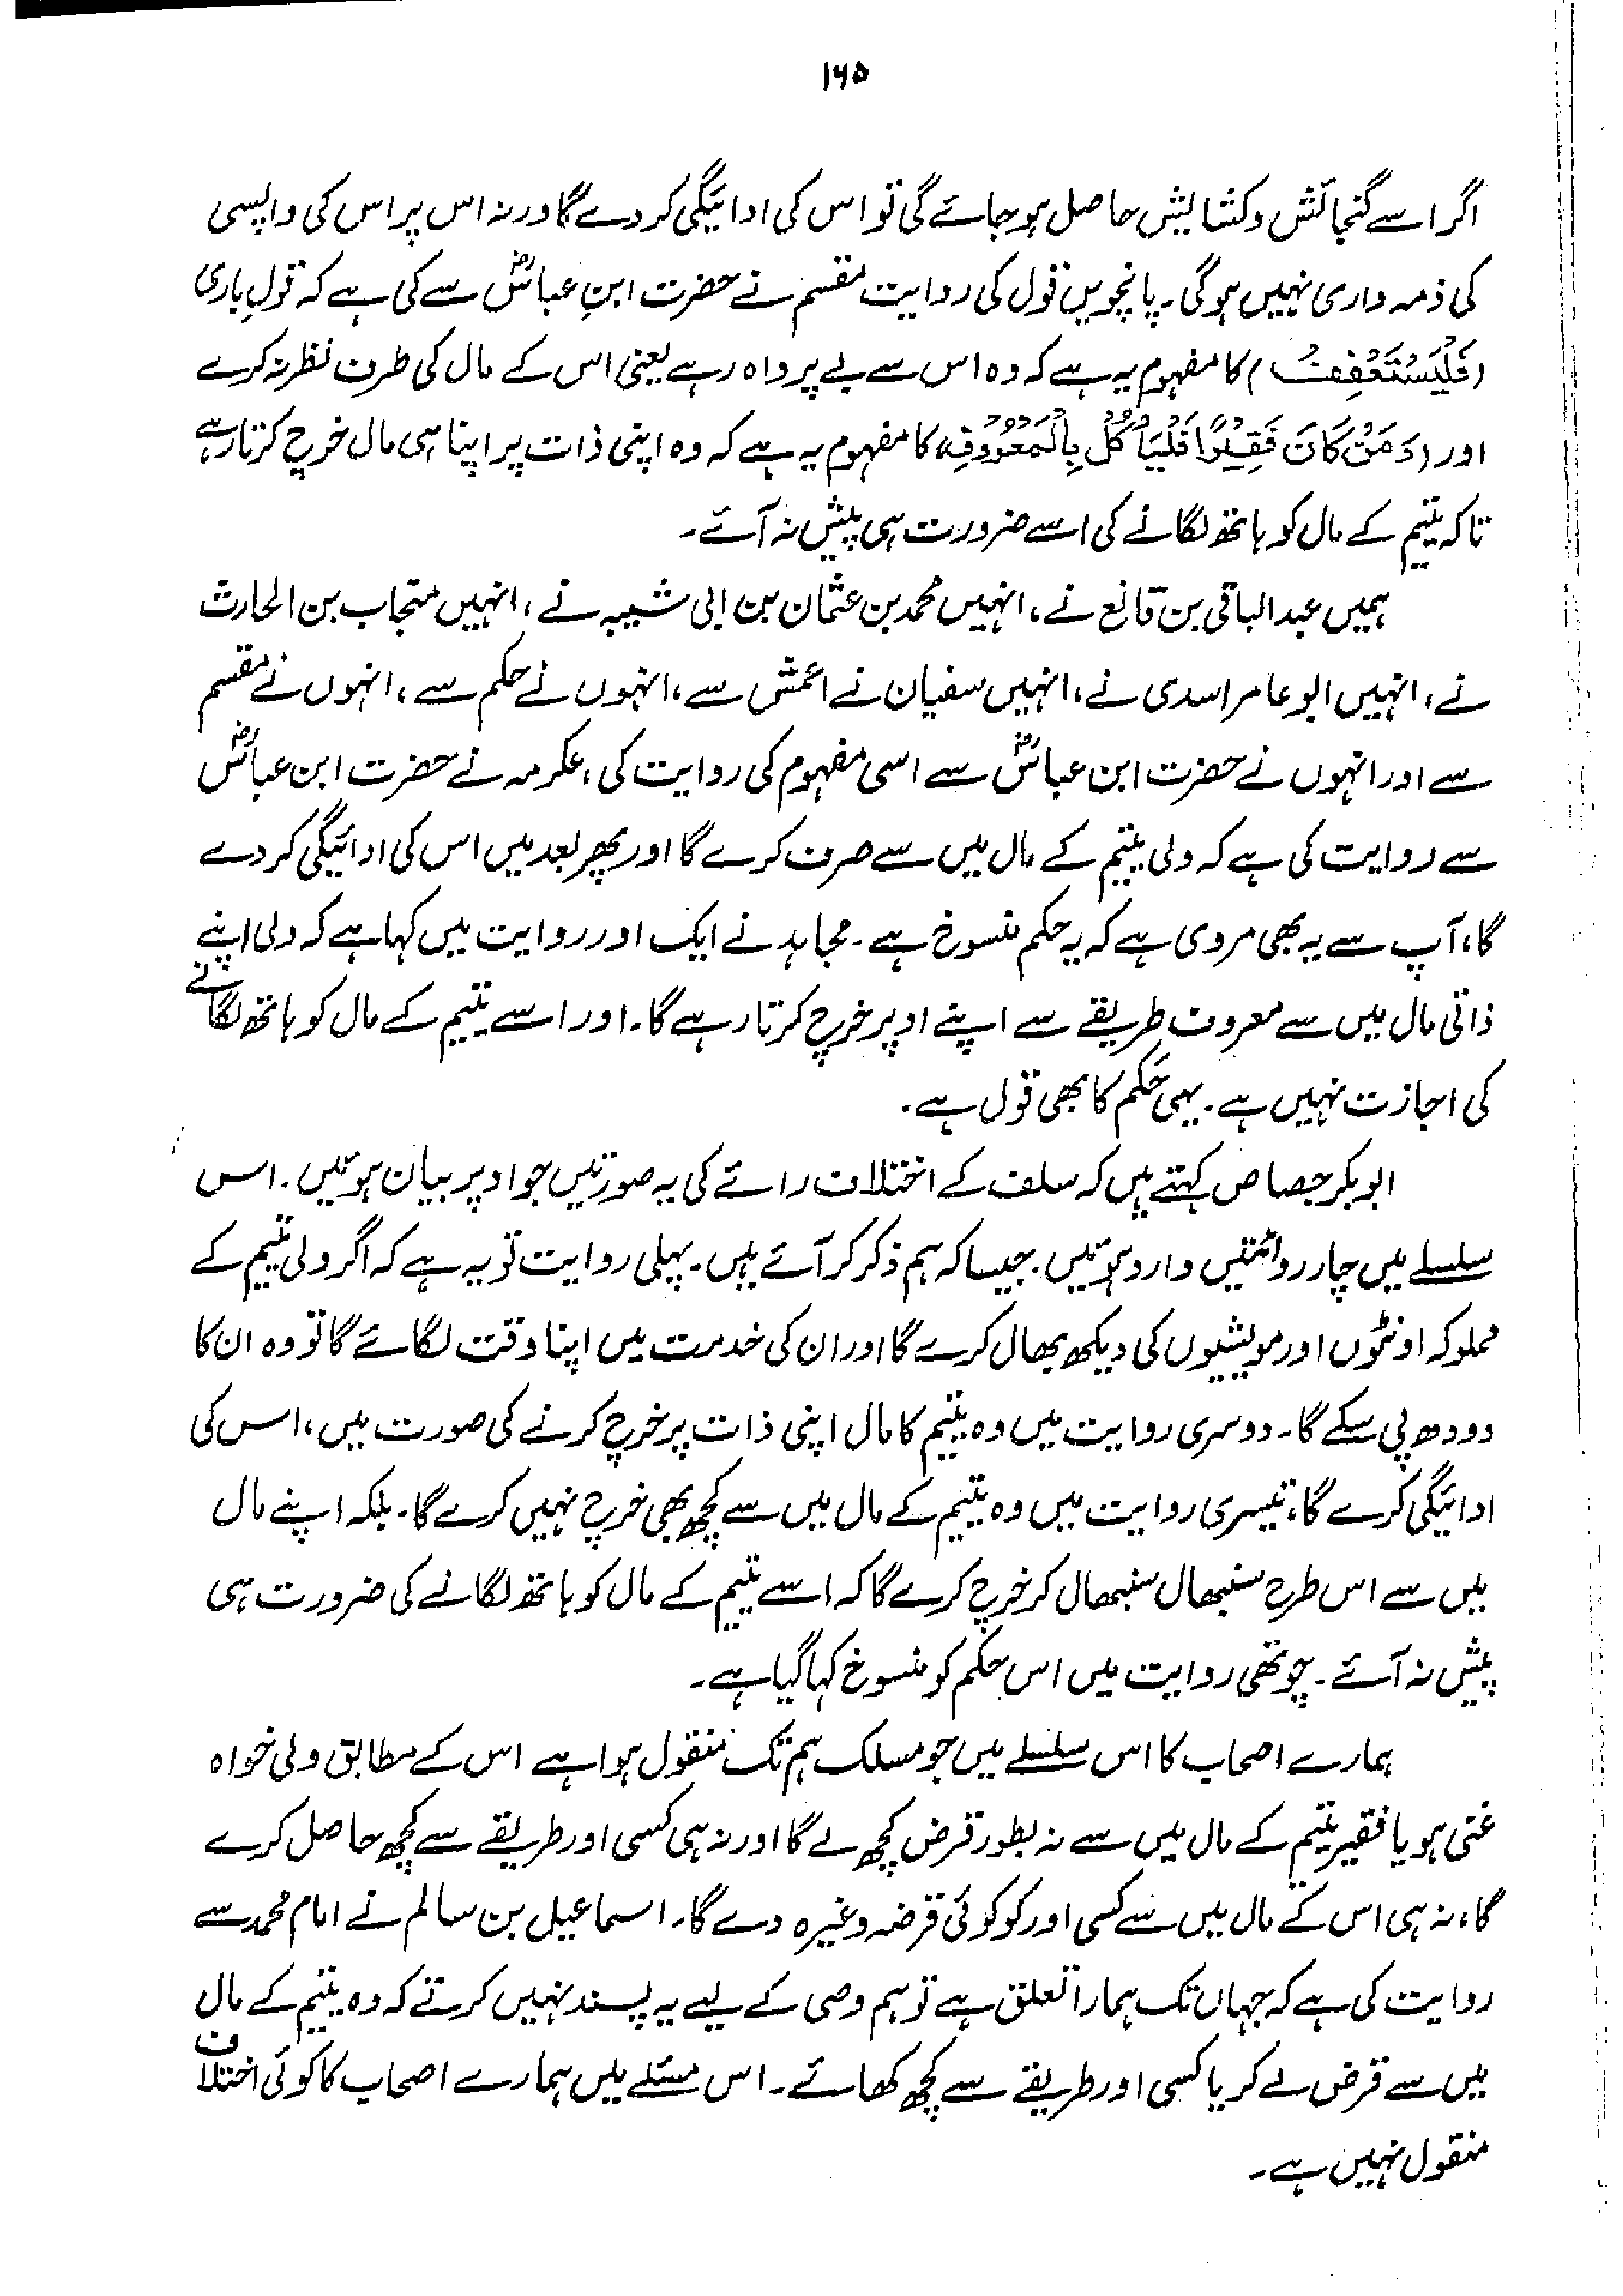 ۱۶۵
اگر اسے گنجائش و کشایش حاصل ہو جائے گی تو اس کی ادائیگی کر دے گا ورنہ اس پر اس کی واپسی
کی ذمہ داری نہیں ہو گی۔ پانچویں قول کی روایت مقسم نے حضرت ابنِ عباسؓ سے کی ہے کہ قولِ باری
(فَلْيَسْتَعْفِفْ) کا مفہوم یہ ہے کہ وہ اس سے بے پرواہ رہے یعنی اس کے مال کی طرف نظر نہ کرے
اور (وَمَنْ كَانَ فَقِيْرًا فَلْيَأْكُلْ بِالْمَعْرُوْفِ) کا مفہوم یہ ہے کہ وہ اپنی ذات پر اپنا ہی مال خرچ کرتا رہے
تاکہ یتیم کے مال کو ہاتھ لگانے کی اسے ضرورت ہی پیش نہ آئے۔
ہمیں عبدالباقی بن قانع نے، انہیں محمد بن عثمان بن ابی شیبہ نے، انہیں منجاب بن الحارث
نے، انہیں ابو عامر اسدی نے، انہیں سفیان نے اعمش سے، انہوں نے حکم سے، انہوں نے مقسم
سے اور انہوں نے حضرت ابن عباسؓ سے اسی مفہوم کی روایت کی، عکرمہ نے حضرت ابن عباسؓ
سے روایت کی ہے کہ ولی یتیم کے مال میں سے صرف کرے گا اور پھر بعد میں اس کی ادائیگی کر دے
گا، آپ سے یہ بھی مروی ہے کہ یہ حکم منسوخ ہے۔ مجاہد نے ایک اور روایت میں کہا ہے کہ ولی اپنے
ذاتی مال میں سے معروف طریقے سے اپنے اوپر خرچ کرتا رہے گا۔ اور اسے یتیم کے مال کو ہاتھ لگانے
کی اجازت نہیں ہے۔ یہی حَکم کا بھی قول ہے۔
ابوبکر جصاص کہتے ہیں کہ سلف کے اختلاف رائے کی یہ صورتیں جو اوپر بیان ہوئیں۔ اس
سلسلے میں چار روائتیں وارد ہوئیں۔ جیسا کہ ہم ذکر کر آئے ہیں۔ پہلی روایت تو یہ ہے کہ اگر ولی یتیم کے
مملوکہ اونٹوں اور مویشیوں کی دیکھ بھال کرے گا اور ان کی خدمت میں اپنا وقت لگائے گا تو وہ ان کا
دودھ پی سکے گا۔ دوسری روایت میں وہ یتیم کا مال اپنی ذات پر خرچ کرنے کی صورت میں، اس کی
ادائیگی کرے گا، تیسری روایت میں وہ یتیم کے مال میں سے کچھ بھی خرچ نہیں کرے گا۔ بلکہ اپنے مال
میں سے اس طرح سنبھال سنبھال کر خرچ کرے گا کہ اسے یتیم کے مال کو ہاتھ لگانے کی ضرورت ہی
پیش نہ آئے۔ چوتھی روایت میں اس حکم کو منسوخ کہا گیا ہے۔
ہمارے اصحاب کا اس سلسلے میں جو مسلک ہم تک منقول ہوا ہے اس کے مطابق ولی خواہ
غنی ہو یا فقیر یتیم کے مال میں سے نہ بطور قرض کچھ لے گا اور نہ ہی کسی اور طریقے سے کچھ حاصل کرے
گا، نہ ہی اس کے مال میں سے کسی اور کو کوئی قرضہ وغیرہ دے گا۔ اسماعیل بن سالم نے امام محمد سے
روایت کی ہے کہ جہاں تک ہمارا تعلق ہے تو ہم وصی کے لیے یہ پسند نہیں کرتے کہ وہ یتیم کے مال
میں سے قرض لے کر یا کسی اور طریقے سے کچھ کھائے۔ اس مسئلے میں ہمارے اصحاب کا کوئی اختلاف
منقول نہیں ہے۔